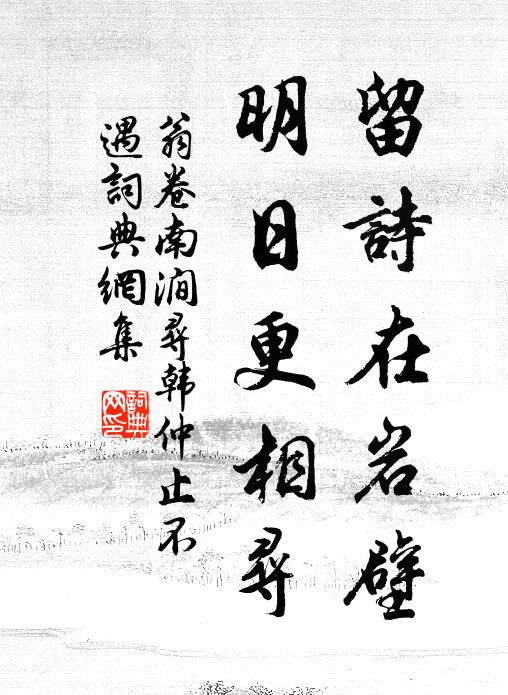 留詩在岩壁
明日更相尋
翁卷南澗尋韩仲止不
遇詞典網集
詞典网印